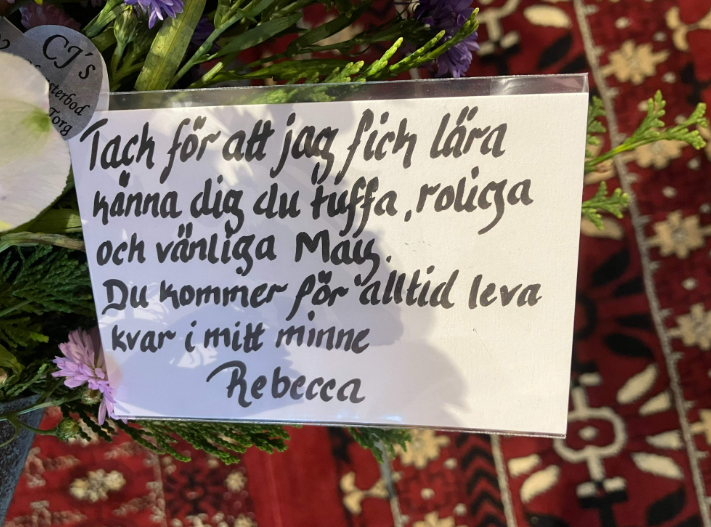 CJ's
Torg
Tack för att jag fick lära
känna dig du tuffa, roliga
och vänliga May.
Du kommer för alltid leva
kvar i mitt minne
Rebecca